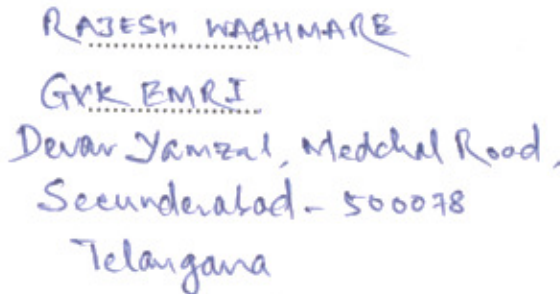 RAJESH WAGHMARE
GVK EMRI
Devar Yamzal, Medchal Road,
Secunderabad - 500078
Telangana